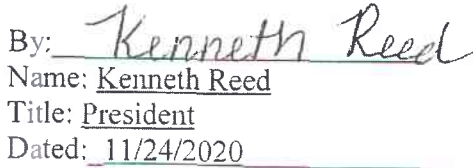 By: Kenneth Reed
Name: Kenneth Reed
Title: President
Dated: 11/24/2020